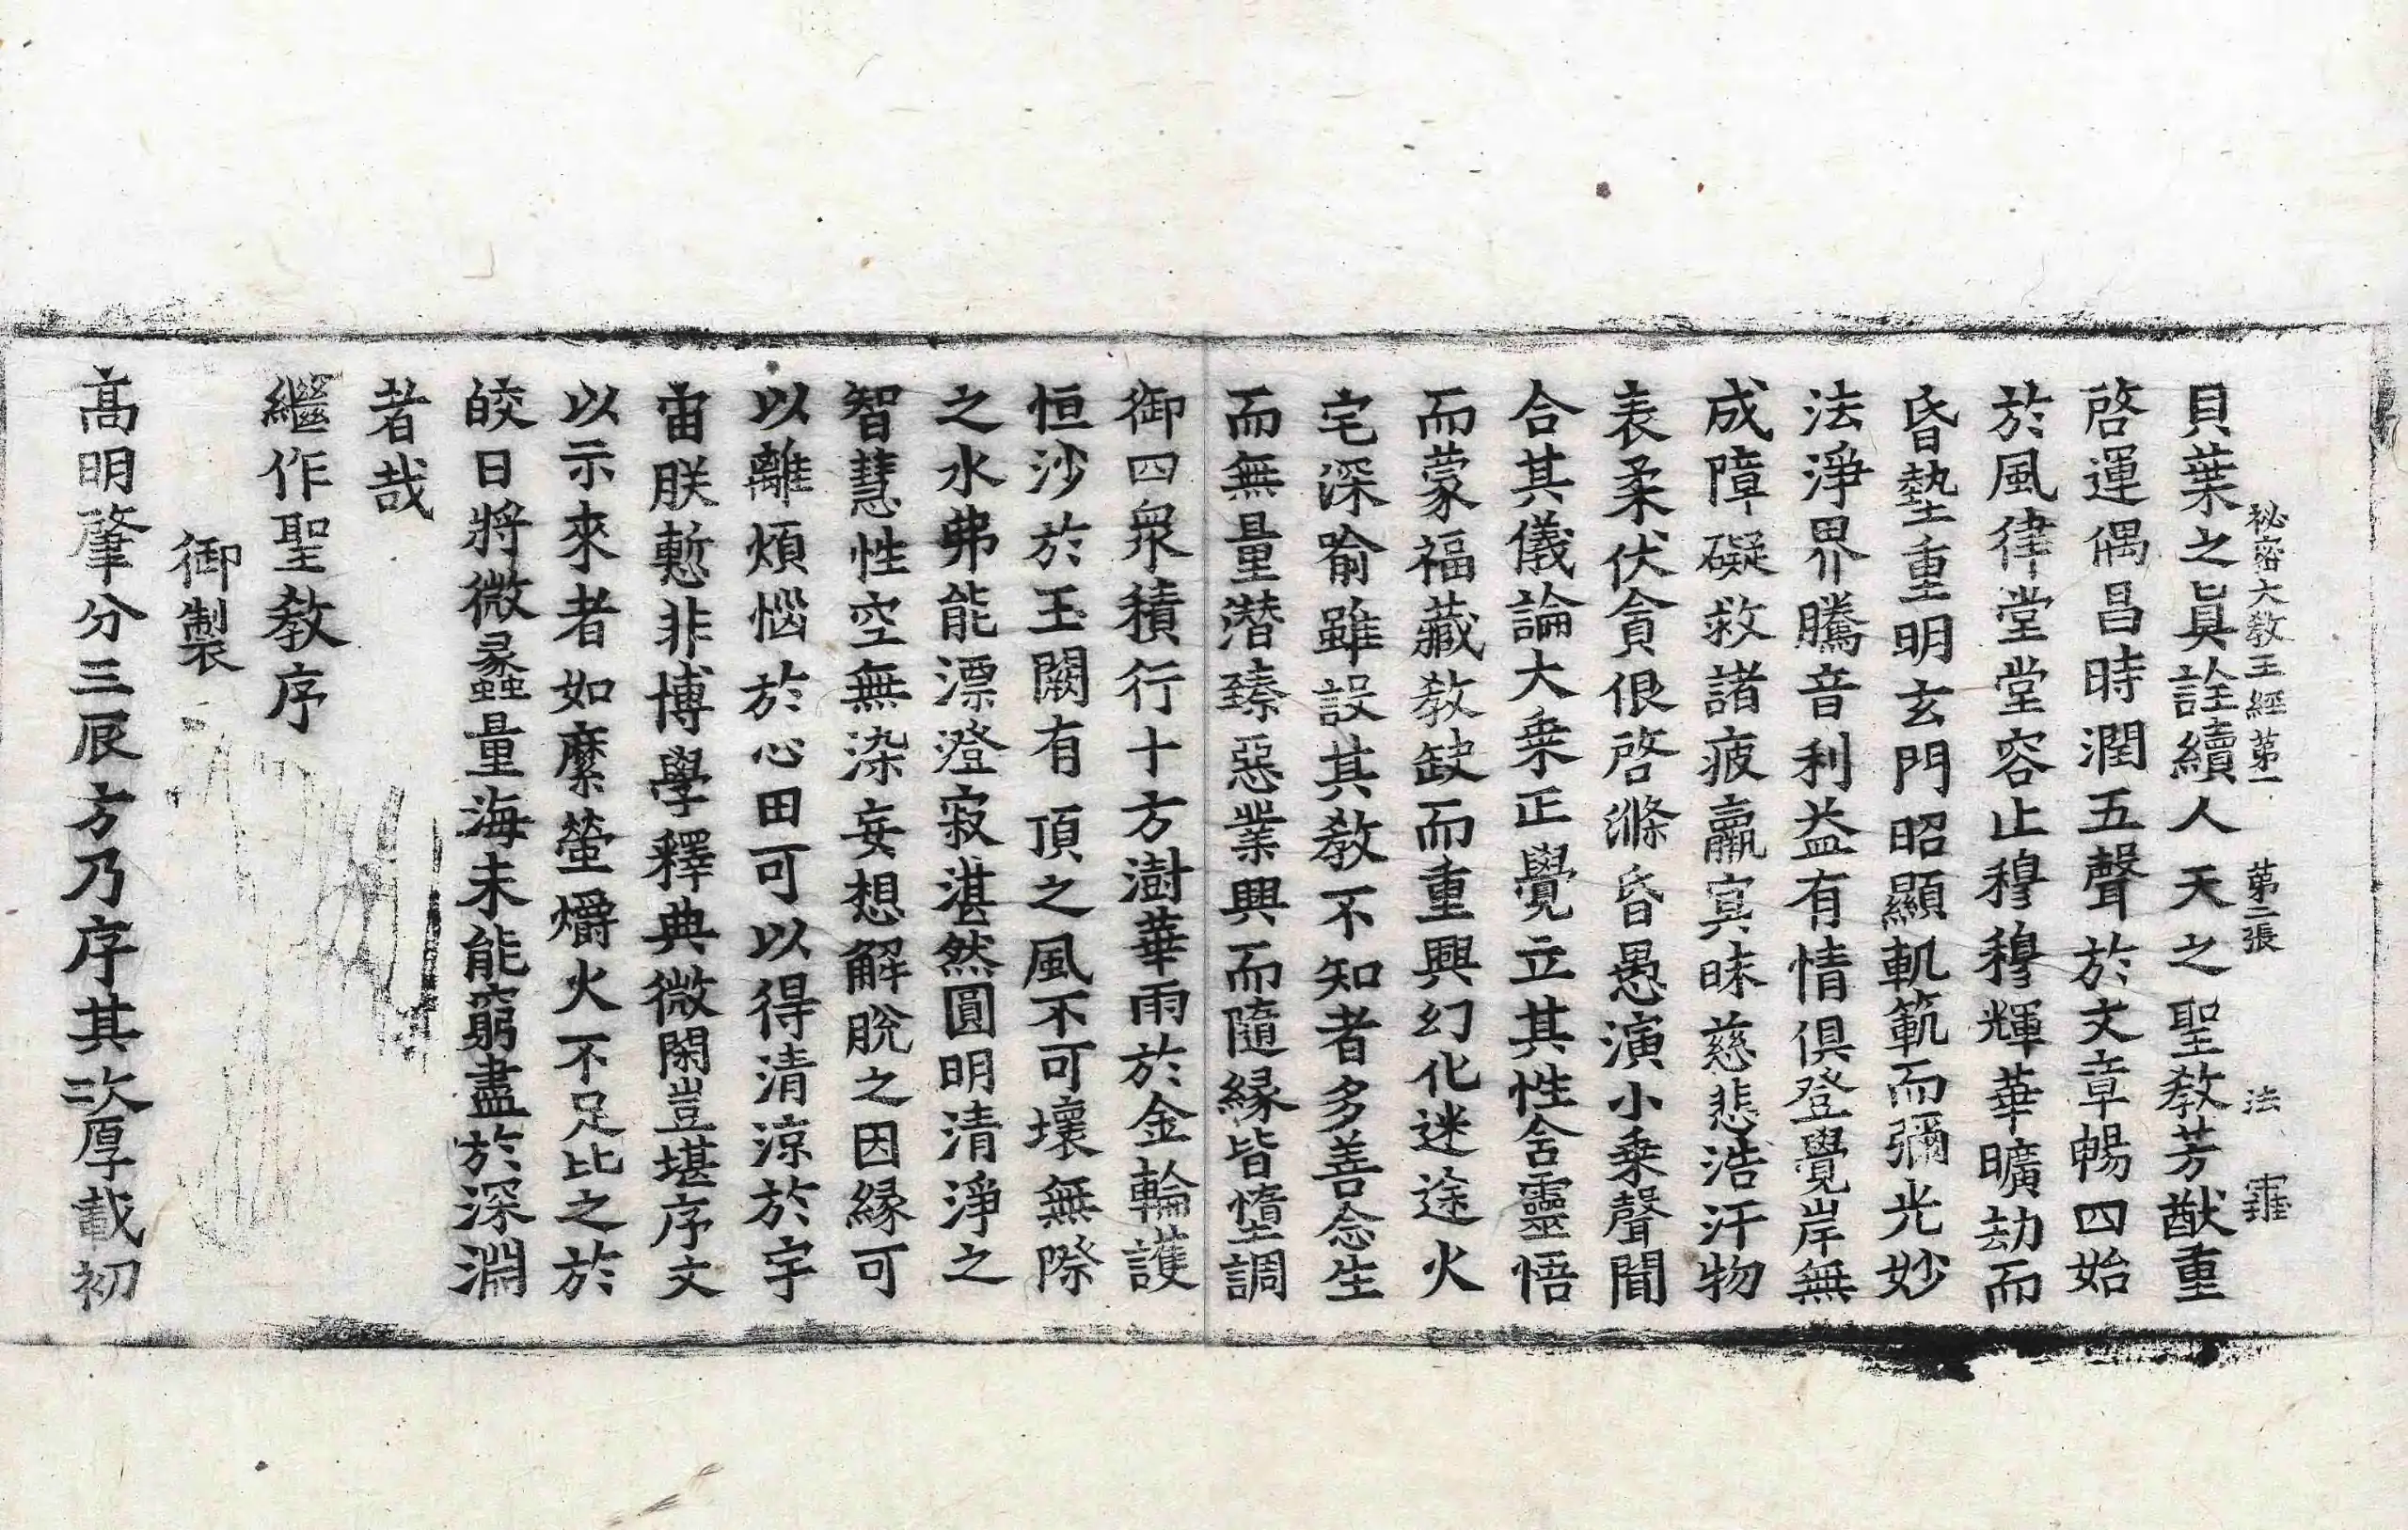 秘密大教王經第一 第二張 法
貝葉之眞詮續人天之聖教芳猷重
啓運偶昌時潤五聲於文章暢四始
於風律堂堂容止穆穆輝華曠劫而
昏墊重明玄門昭顯軌範而彌光妙
法淨界騰音利益有情俱登覺岸無
成障礙救諸疲羸寘昧慈悲浩汗物
表柔伏貪佷啓滌昏愚演小乗聲聞
合其儀論大乗正覺立其性含靈悟
而蒙福藏教缺而重興幻化迷途火
宅深喻雖設其教不知者多善念生
而無量潛臻惡業興而隨緣皆墮調
御四衆積行十方澍華雨於金輪護
恒沙於玉闕有頂之風不可壞無際
之水弗能漂澄寂湛然圓明清淨之
智慧性空無染妄想解脫之因緣可
以離煩惱於心田可以得清涼於宇
宙朕慙非博學釋典微閑豈堪序文
以示來者如縻螢爝火不足比之於
皎日將微蠡量海未能窮盡於深淵
者哉
繼作聖教序
御製
高明肇分三辰方乃序其次厚載初